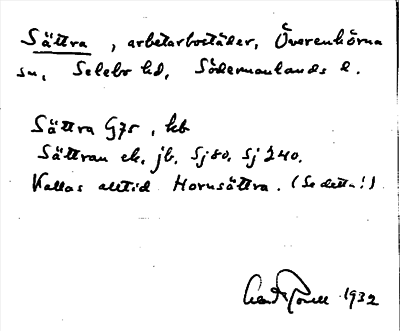 Sättra, arbetarbostäder, Överenhörna
sn, Selebo hd, Södermanlands l.
Sättra G75, kb
Sättran ek, jb, Sj80, Sj 240.
Kallas alltid Hornsättra. (Se detta!)
1932